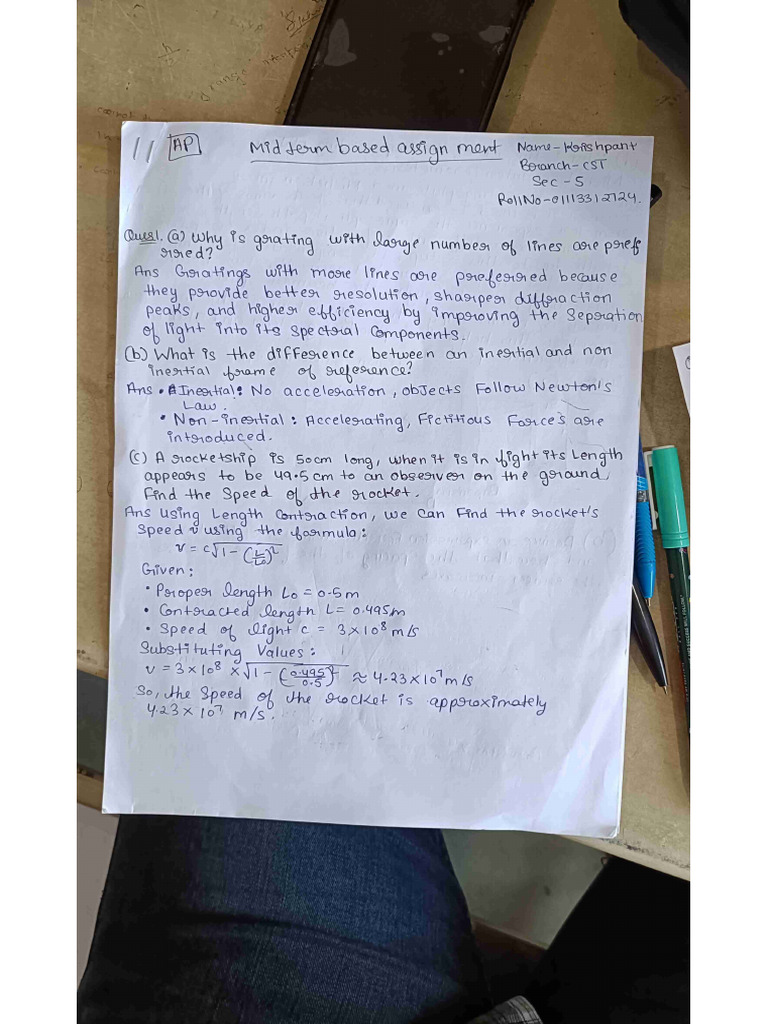 11 AP Mid term based assignment Name-Krishpant
Branch-CST
Sec-5
Roll No-01113312724.
Ques1. (a) Why is grating with large number of lines are pref
rred?
Ans Gratings with more lines are preferred because
they provide better resolution, sharper diffraction
peaks, and higher efficiency by improving the Sepration
of light into its spectral components.
(b) What is the difference between an inertial and non
inertial frame of reference?
Ans • Inertial: No acceleration, objects Follow Newton's
Law.
• Non-inertial: Accelerating, Fictitious Force's are
introduced.
(c) A rocketship is 50cm long, when it is in fight its Length
appears to be 49.5 cm to an observer on the ground,
Find the Speed of the rocket.
Ans Using Length Contraction, we can Find the rocket's
Speed v using the formula:
v = c√1-(L/L₀)²
Given:
• Proper length L₀ = 0.5m
• Contracted length L = 0.495m
• Speed of light c = 3×10⁸ m/s
Substituting Values:
v = 3×10⁸ × √1-(0.495/0.5)² ≈ 4.23×10⁷ m/s
So, the Speed of the rocket is approximately
4.23×10⁷ m/s.